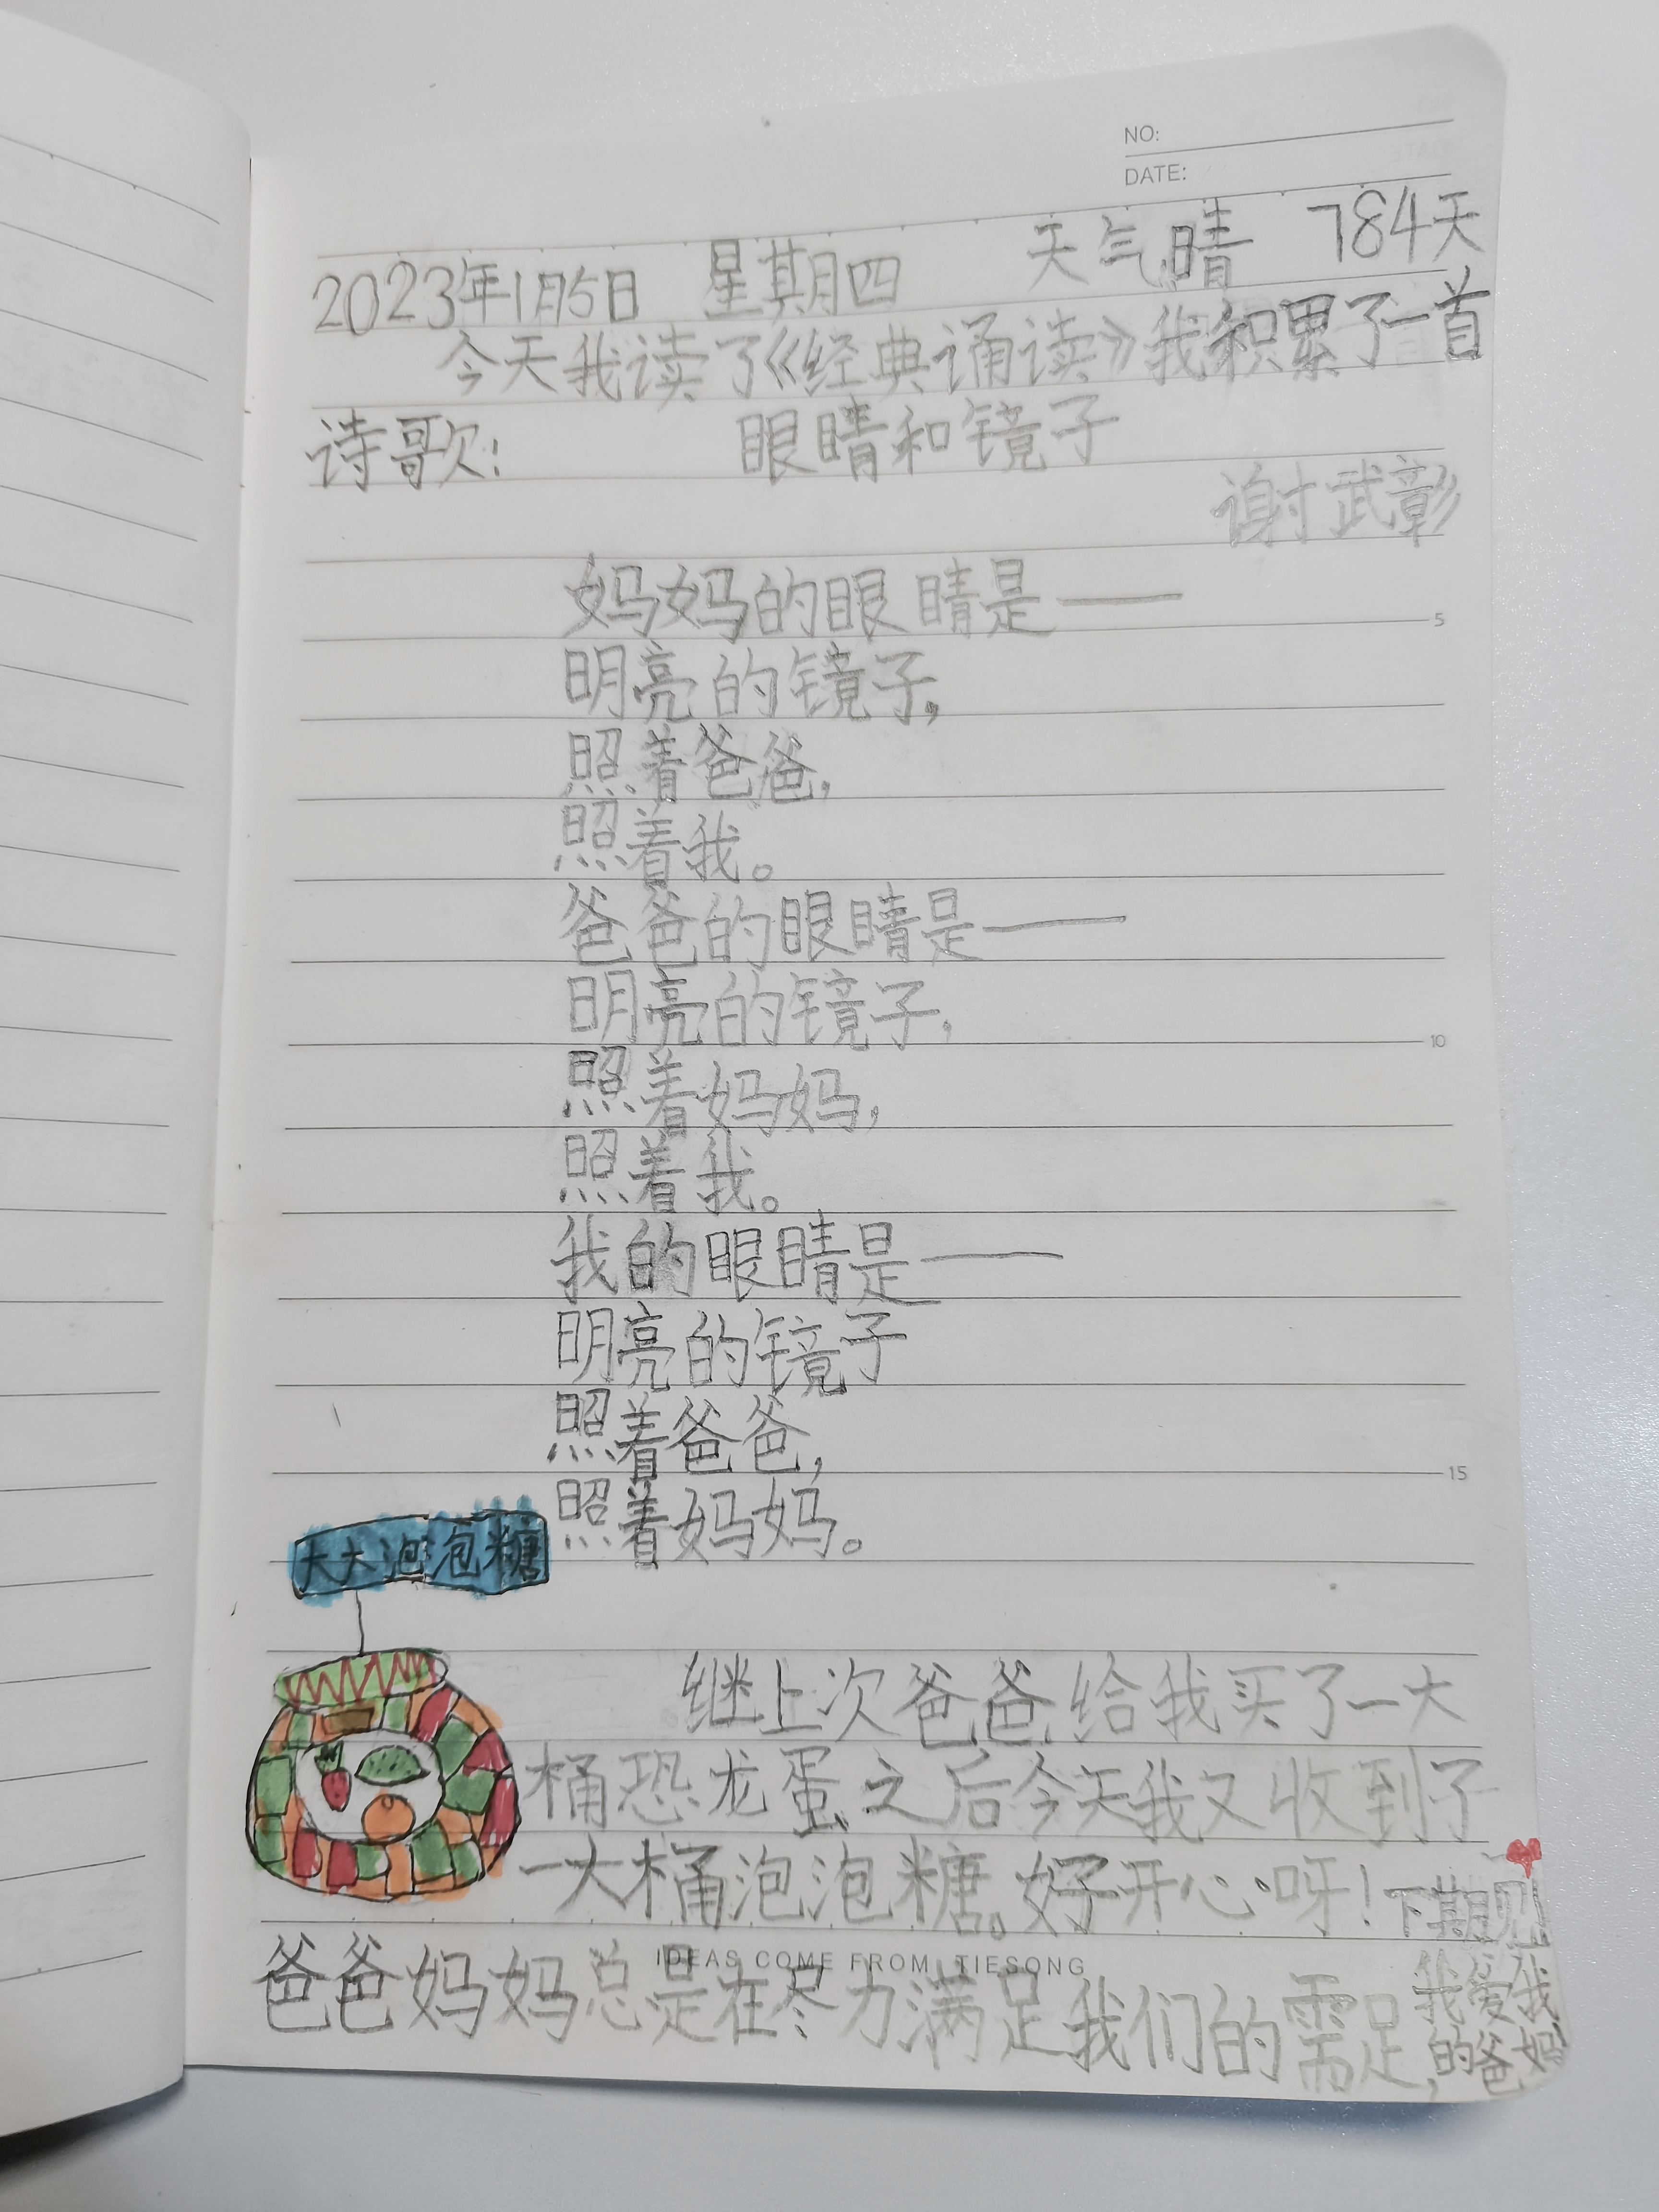 NO:
DATE:
2023年1月5日 星期四 天气晴 784天
今天我读了《经典诵读》我积累了一首
诗歌: 眼睛和镜子
谢武彰
妈妈的眼睛是——
5
明亮的镜子,
照着爸爸,
照着我。
爸爸的眼睛是——
明亮的镜子,
10
照着妈妈,
照着我。
我的眼睛是——
明亮的镜子
照着爸爸,
15
照着妈妈。
大大泡泡糖
继上次爸爸给我买了一大
桶恐龙蛋之后今天我又收到了
一大桶泡泡糖。好开心呀!下期见
IDEAS COME FROM TIESONG
爸爸妈妈总是在尽力满足我们的需足,
我爱我
的爸妈